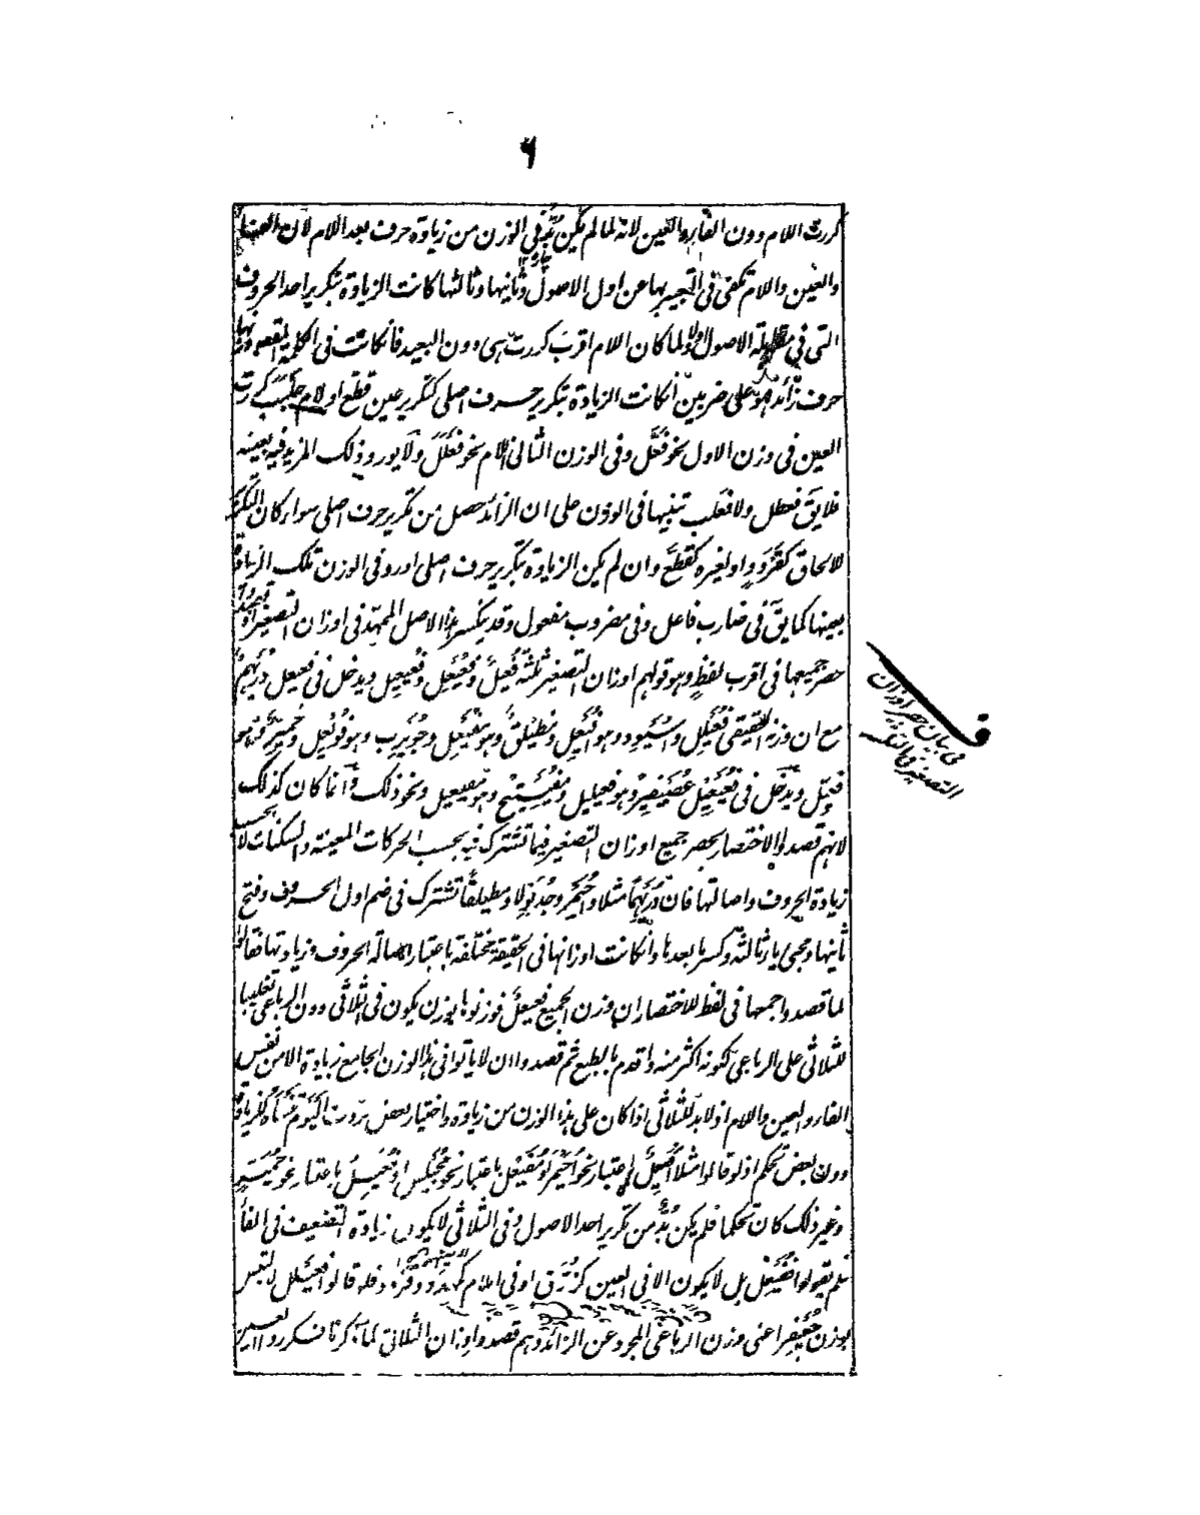 ٦
كررت اللام دون الفاء والعين لانه لما لم يكن بد فى الوزن من زيادة حرف بعد اللام لان الفاء
والعين واللام تكفى فى التعبير بها عن اول الاصول وثانيها وثالثها كانت الزيادة بتكرير احد الحروف
التى فى مقابلة الاصول ولما كان اللام اقرب كررت هى دون البعيد فان كانت فى الكلمة
حرف زائد فهو على ضربين ان كانت الزيادة بتكرير حرف اصلى كتكرير عين قطع او لام جلبب كررت
العين فى وزن الاول نحو فعَّل وفى الوزن الثانى اللام نحو فَعْلَلَ ولا يورد ذلك المزيد فيه بعينه
فلا يق فعطل ولا فعلب تنبيها فى الوزن على ان الزائد حصل من تكرير حرف اصلى سواء كان التكرير
للالحاق كقردد او لغيره كقطّع وان لم يكن الزيادة بتكرير حرف اصلى اورد فى الوزن تلك الزيادة
بعينها كما يق فى ضارب فاعل وفى مضروب مفعول وقد ينكسر هذا الاصل الممهد فى اوزان التصغير
حصر جميعها فى اقرب لفظ وهو قولهم اوزان التصغير ثلثة فُعَيل وفُعَيعِل وفُعَيعِيل ويدخل فى فعيعل دُرَيهِم
مع ان وزنه الحقيقى فُعَيلِل واُسَيوِد وهو اُفَيعِل ومُطَيلِق وهو مُفَيعِل وجُوَيرِب وهو فُوَيعِل وحُمَيِّر وهو
فُعَيِّل ويدخل فى فُعَيعِيل عُصَيفِير وهو فعيليل ومُفَيتِيح وهو مفيعيل ونحو ذلك وانما كان كذلك
لانهم قصدوا الاختصار بحصر جميع اوزان التصغير فيما تشترك فيه بحسب الحركات المعينة والسكنات لا بحسب
زيادة الحروف واصالتها فان دُرَيهِما مثلا واُحَيمِر وجُدَيوِلا ومطيلقا تشترك فى ضم اول الحروف وفتح
ثانيها ومجئ ياء ثالثة وكسر ما بعدها وان كانت اوزانها فى الحقيقة مختلفة باعتبار اصالة الحروف وزيادتها فقالوا
لما قصدوا جمعها فى لفظ للاختصار ان وزن الجميع فُعَيعِل فوزنوها بوزن يكون فى الثلاثى دون الرباعى تغليبا
للثلاثى على الرباعى لكونه اكثر منه واقدم بالطبع ثم قصدوا ان لا ياتوا فى هذا الوزن الجامع بزيادة الا من نفس
الفاء والعين واللام اذ لا بد للثلاثى اذا كان على هذا الوزن من زيادة واختيار بعض حروف اليوم تنساه للزيادة
دون بعض تحكم اذ لو قالوا مثلا اُفَيعِل باعتبار نحو اُحَيمِر ومُفَيعِل باعتبار نحو مُجَيلِس او فُعَيمِل باعتبار نحو
وغير ذلك كان تحكما فلم يكن بد من تكرير احد الاصول وفى الثلاثى لا يكون زيادة التضعيف فى الفاء
فلم يقولوا فُفَيعِل بل لا يكون الا فى العين كزُرَّق او فى اللام كمهدد وقردد فلو قالوا فُعَيلِل لالتبس
بوزن جُعَيفِر اعنى وزن الرباعى المجرد عن الزائد وهم قصدوا اوزان الثلاثى لما ذكرنا فكرروا العين
فى بيان حصر اوزان
التصغير فى الثلثة